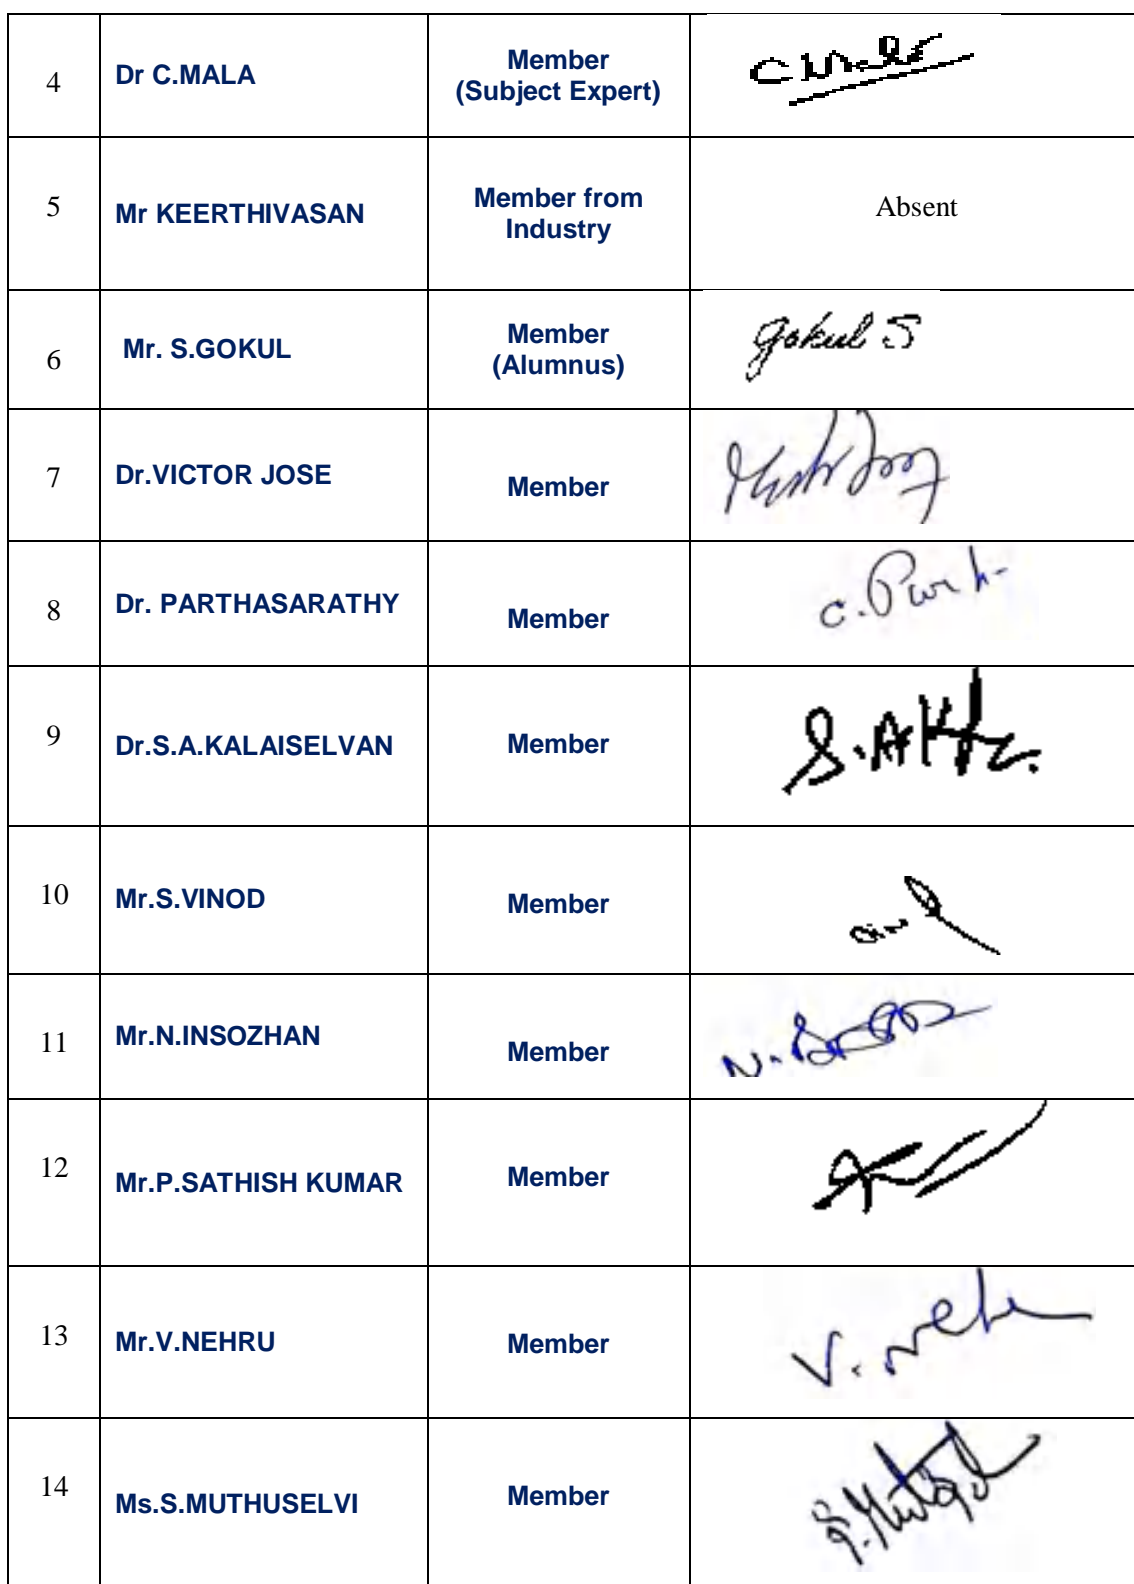 4
Dr C.MALA
Member
(Subject Expert)
C Mala
5
Mr KEERTHIVASAN
Member from
Industry
Absent
6
Mr. S.GOKUL
Member
(Alumnus)
Gokul S
7
Dr.VICTOR JOSE
Member
8
Dr. PARTHASARATHY
Member
9
Dr.S.A.KALAISELVAN
Member
10
Mr.S.VINOD
Member
11
Mr.N.INSOZHAN
Member
12
Mr.P.SATHISH KUMAR
Member
13
Mr.V.NEHRU
Member
14
Ms.S.MUTHUSELVI
Member